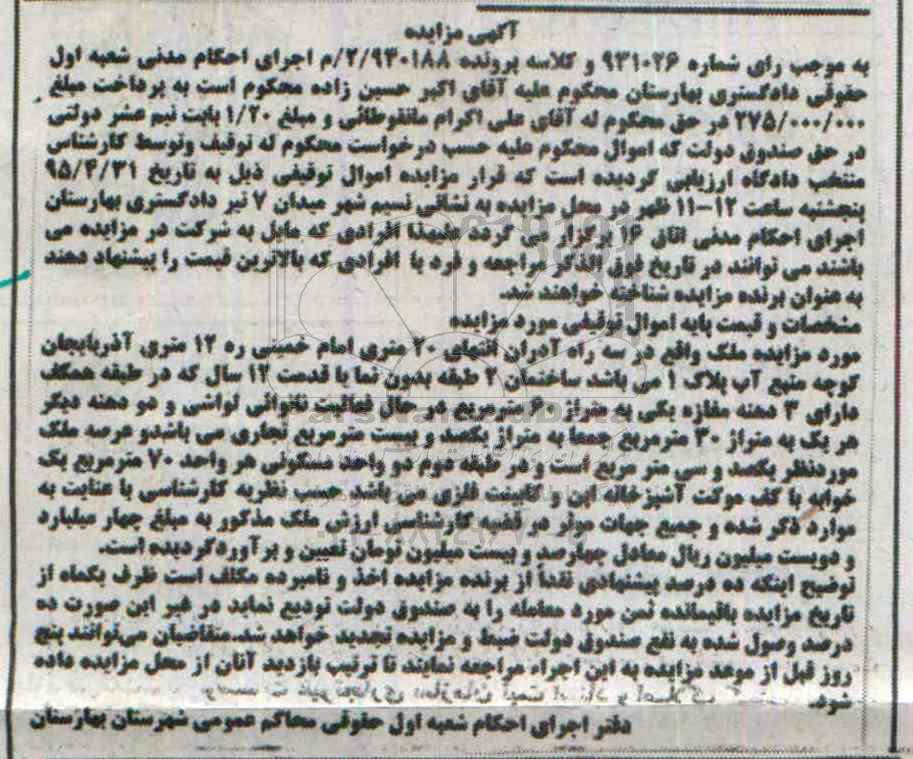 آگهی مزایده
به موجب رای شماره ۹۳۱۰۲۶ و کلاسه پرونده ۲/۹۳۰۱۸۸/م اجرای احکام مدنی شعبه اول
حقوقی دادگستری بهارستان محکوم علیه آقای اکبر حسین زاده محکوم است به پرداخت مبلغ
۲۷۵/۰۰۰/۰۰۰ در حق محکوم له آقای علی اکرام مانقوطائی و مبلغ ۱/۲۰ بابت نیم عشر دولتی
در حق صندوق دولت که اموال محکوم علیه حسب درخواست محکوم له توقیف وتوسط کارشناس
منتخب دادگاه ارزیابی گردیده است که قرار مزایده اموال توقیفی ذیل به تاریخ ۹۵/۴/۳۱
پنجشنبه ساعت ۱۲-۱۱ ظهر در محل مزایده به نشانی نسیم شهر میدان ۷ تیر دادگستری بهارستان
اجرای احکام مدنی اتاق ۱۶ برگزار می گردد علیهذا افرادی که مایل به شرکت در مزایده می
باشند می توانند در تاریخ فوق الذکر مراجعه و فرد یا افرادی که بالاترین قیمت را پیشنهاد دهند
به عنوان برنده مزایده شناخته خواهند شد.
مشخصات و قیمت پایه اموال توقیفی مورد مزایده
مورد مزایده ملک واقع در سه راه آدران انتهای ۲۰ متری امام خمینی ره ۱۲ متری آذربایجان
کوچه منبع آب پلاک ۱ می باشد ساختمان ۲ طبقه بدون نما با قدمت ۱۲ سال که در طبقه همکف
دارای ۳ دهنه مغازه یکی به متراژ ۶۰ مترمربع در حال فعالیت نانوائی لواشی و دو دهنه دیگر
هر یک به متراژ ۳۰ مترمربع جمعا به متراژ یکصد و بیست مترمربع تجاری می باشدو عرصه ملک
موردنظر یکصد و سی متر مربع است و در طبقه دوم دو واحد مسکونی هر واحد ۷۰ مترمربع یک
خوابه با کف موکت آشپزخانه اپن و کابینت فلزی می باشد حسب نظریه کارشناسی با عنایت به
موارد ذکر شده و جمیع جهات موثر در قضیه کارشناسی ارزش ملک مذکور به مبلغ چهار میلیارد
و دویست میلیون ریال معادل چهارصد و بیست میلیون تومان تعیین و برآوردگردیده است.
توضیح اینکه ده درصد پیشنهادی نقداً از برنده مزایده اخذ و نامبرده مکلف است ظرف یکماه از
تاریخ مزایده باقیمانده ثمن مورد معامله را به صندوق دولت تودیع نماید در غیر این صورت ده
درصد وصول شده به نفع صندوق دولت ضبط و مزایده تجدید خواهد شد.متقاضیان می‌توانند پنج
روز قبل از موعد مزایده به این اجراء مراجعه نمایند تا ترتیب بازدید آنان از محل مزایده داده
شود.
دفتر اجرای احکام شعبه اول حقوقی محاکم عمومی شهرستان بهارستان